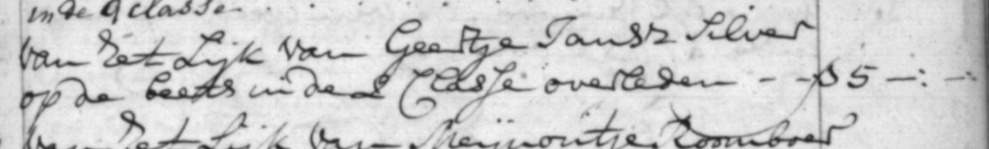 in de 9 classe
van het Lijk van Geertje Jansz Silver
op de beets in de Classe overleden - - ƒ 5 -:-:
van het Lijk van Roomboer